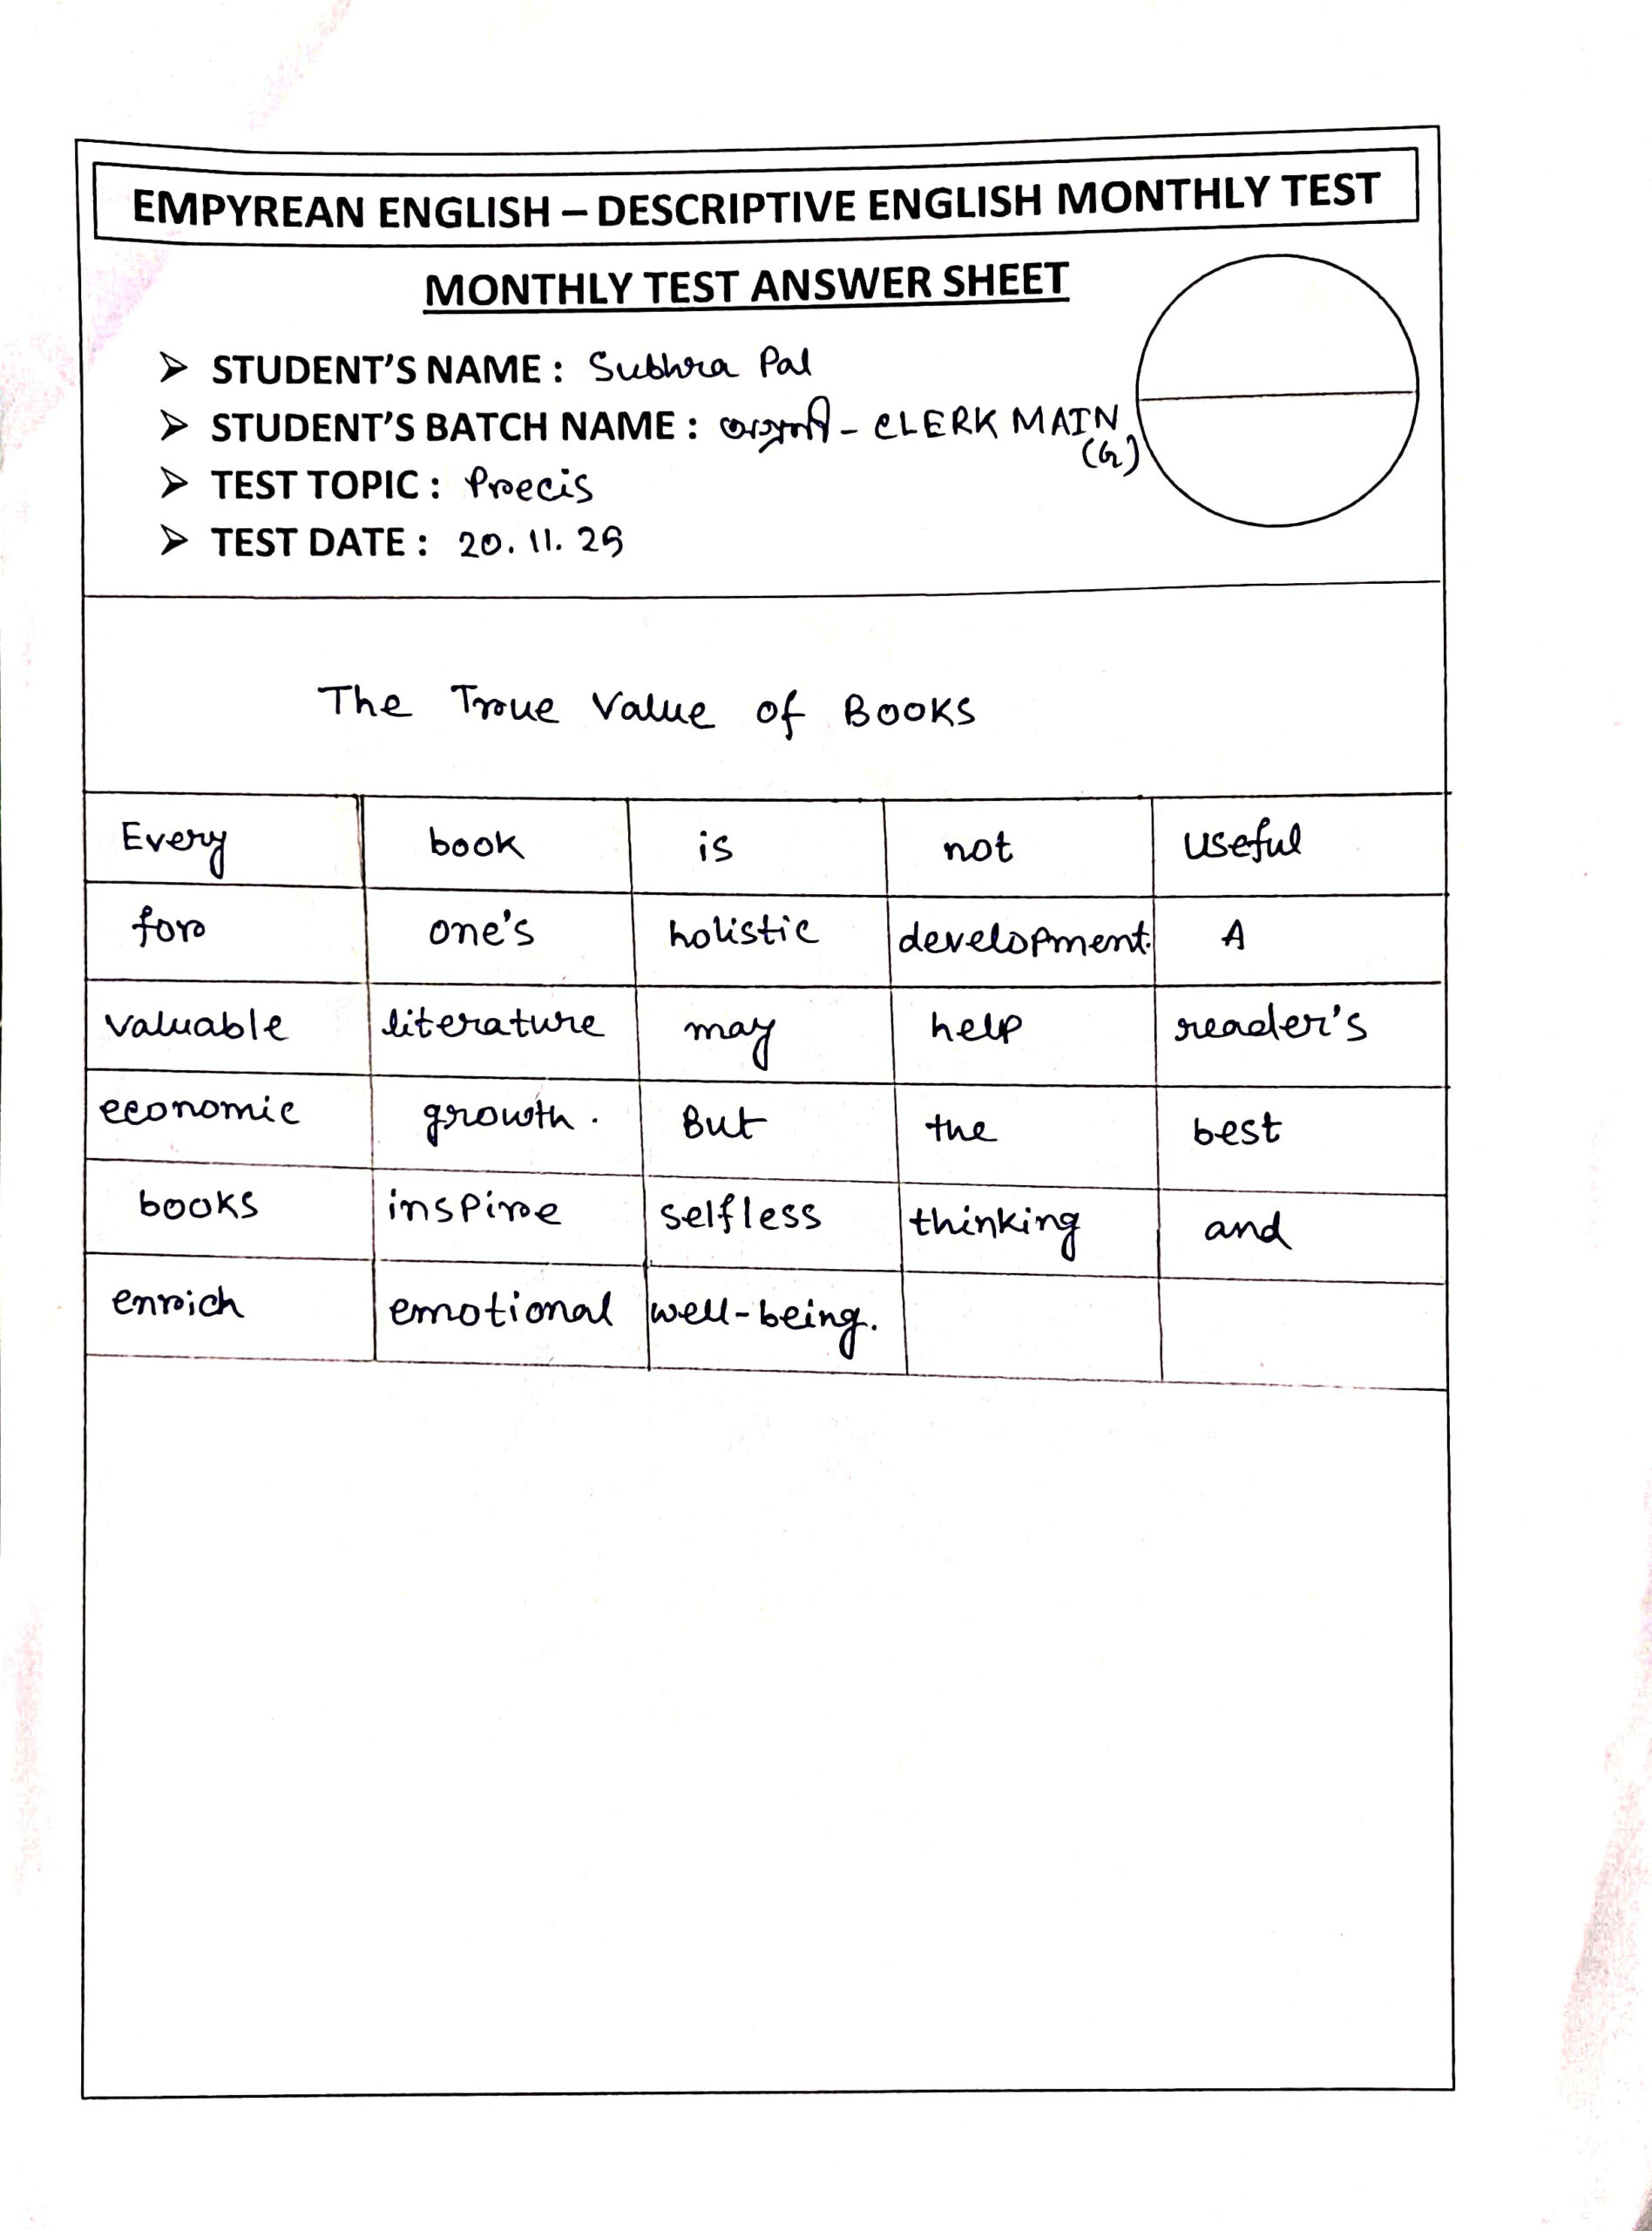 EMPYREAN ENGLISH – DESCRIPTIVE ENGLISH MONTHLY TEST
MONTHLY TEST ANSWER SHEET
➢ STUDENT'S NAME : Subhra Pal
➢ STUDENT'S BATCH NAME : - CLERK MAIN
(G)
➢ TEST TOPIC : Precis
➢ TEST DATE : 20. 11. 25
The True Value of Books
Every book is not useful
for one's holistic development. A
valuable literature may help reader's
economic growth. But the best
books inspire selfless thinking and
enrich emotional well-being.